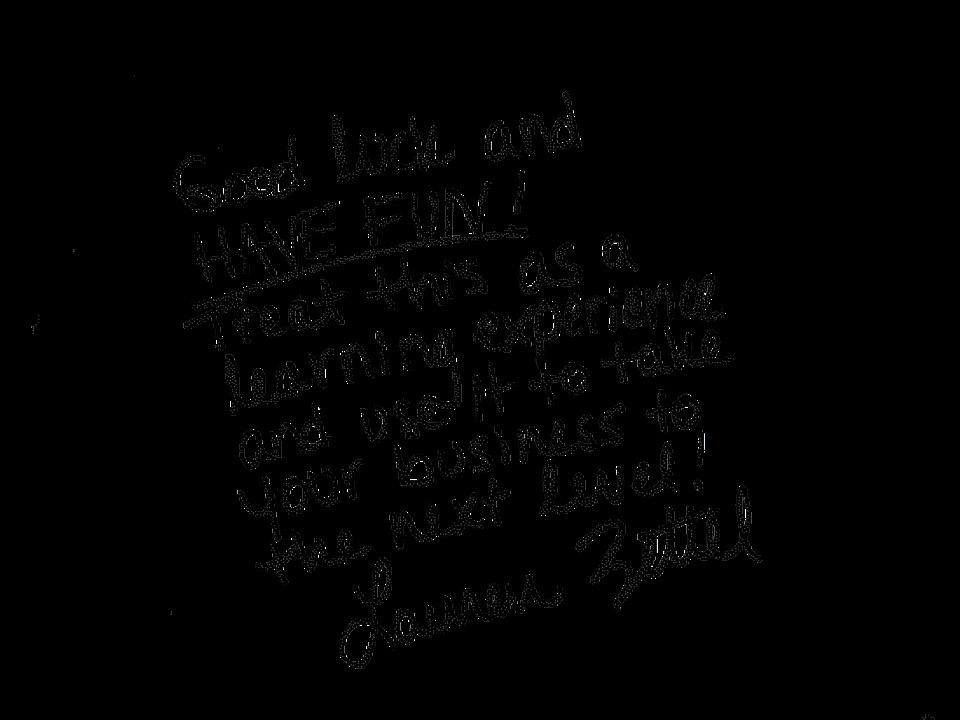 Good luck and
HAVE FUN!
Treat this as a
learning experience
and use it to take
your business to
the next level!
Lauren Zettel